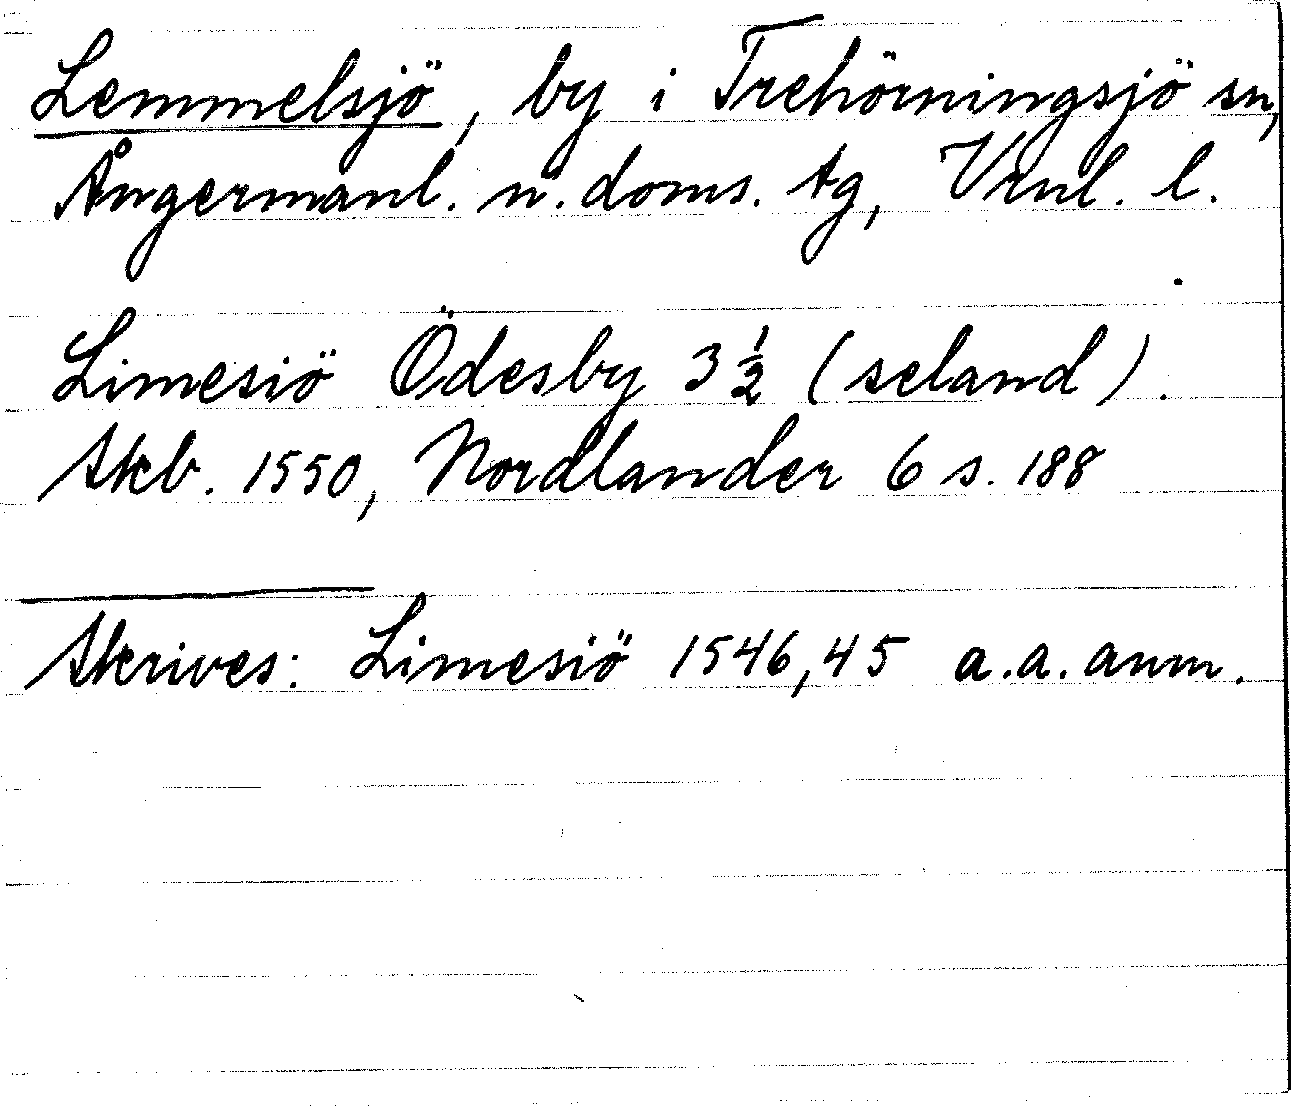 Lemmelsjö, by i Trehörningsjö sn,
Ångermanl. n. doms. tg, Vrnl. l.
Limesiö Ödesby 3 ½ (seland).
Skb. 1550, Nordlander 6 s. 188
Skrives: Limesiö 1546, 45 a.a. anm.